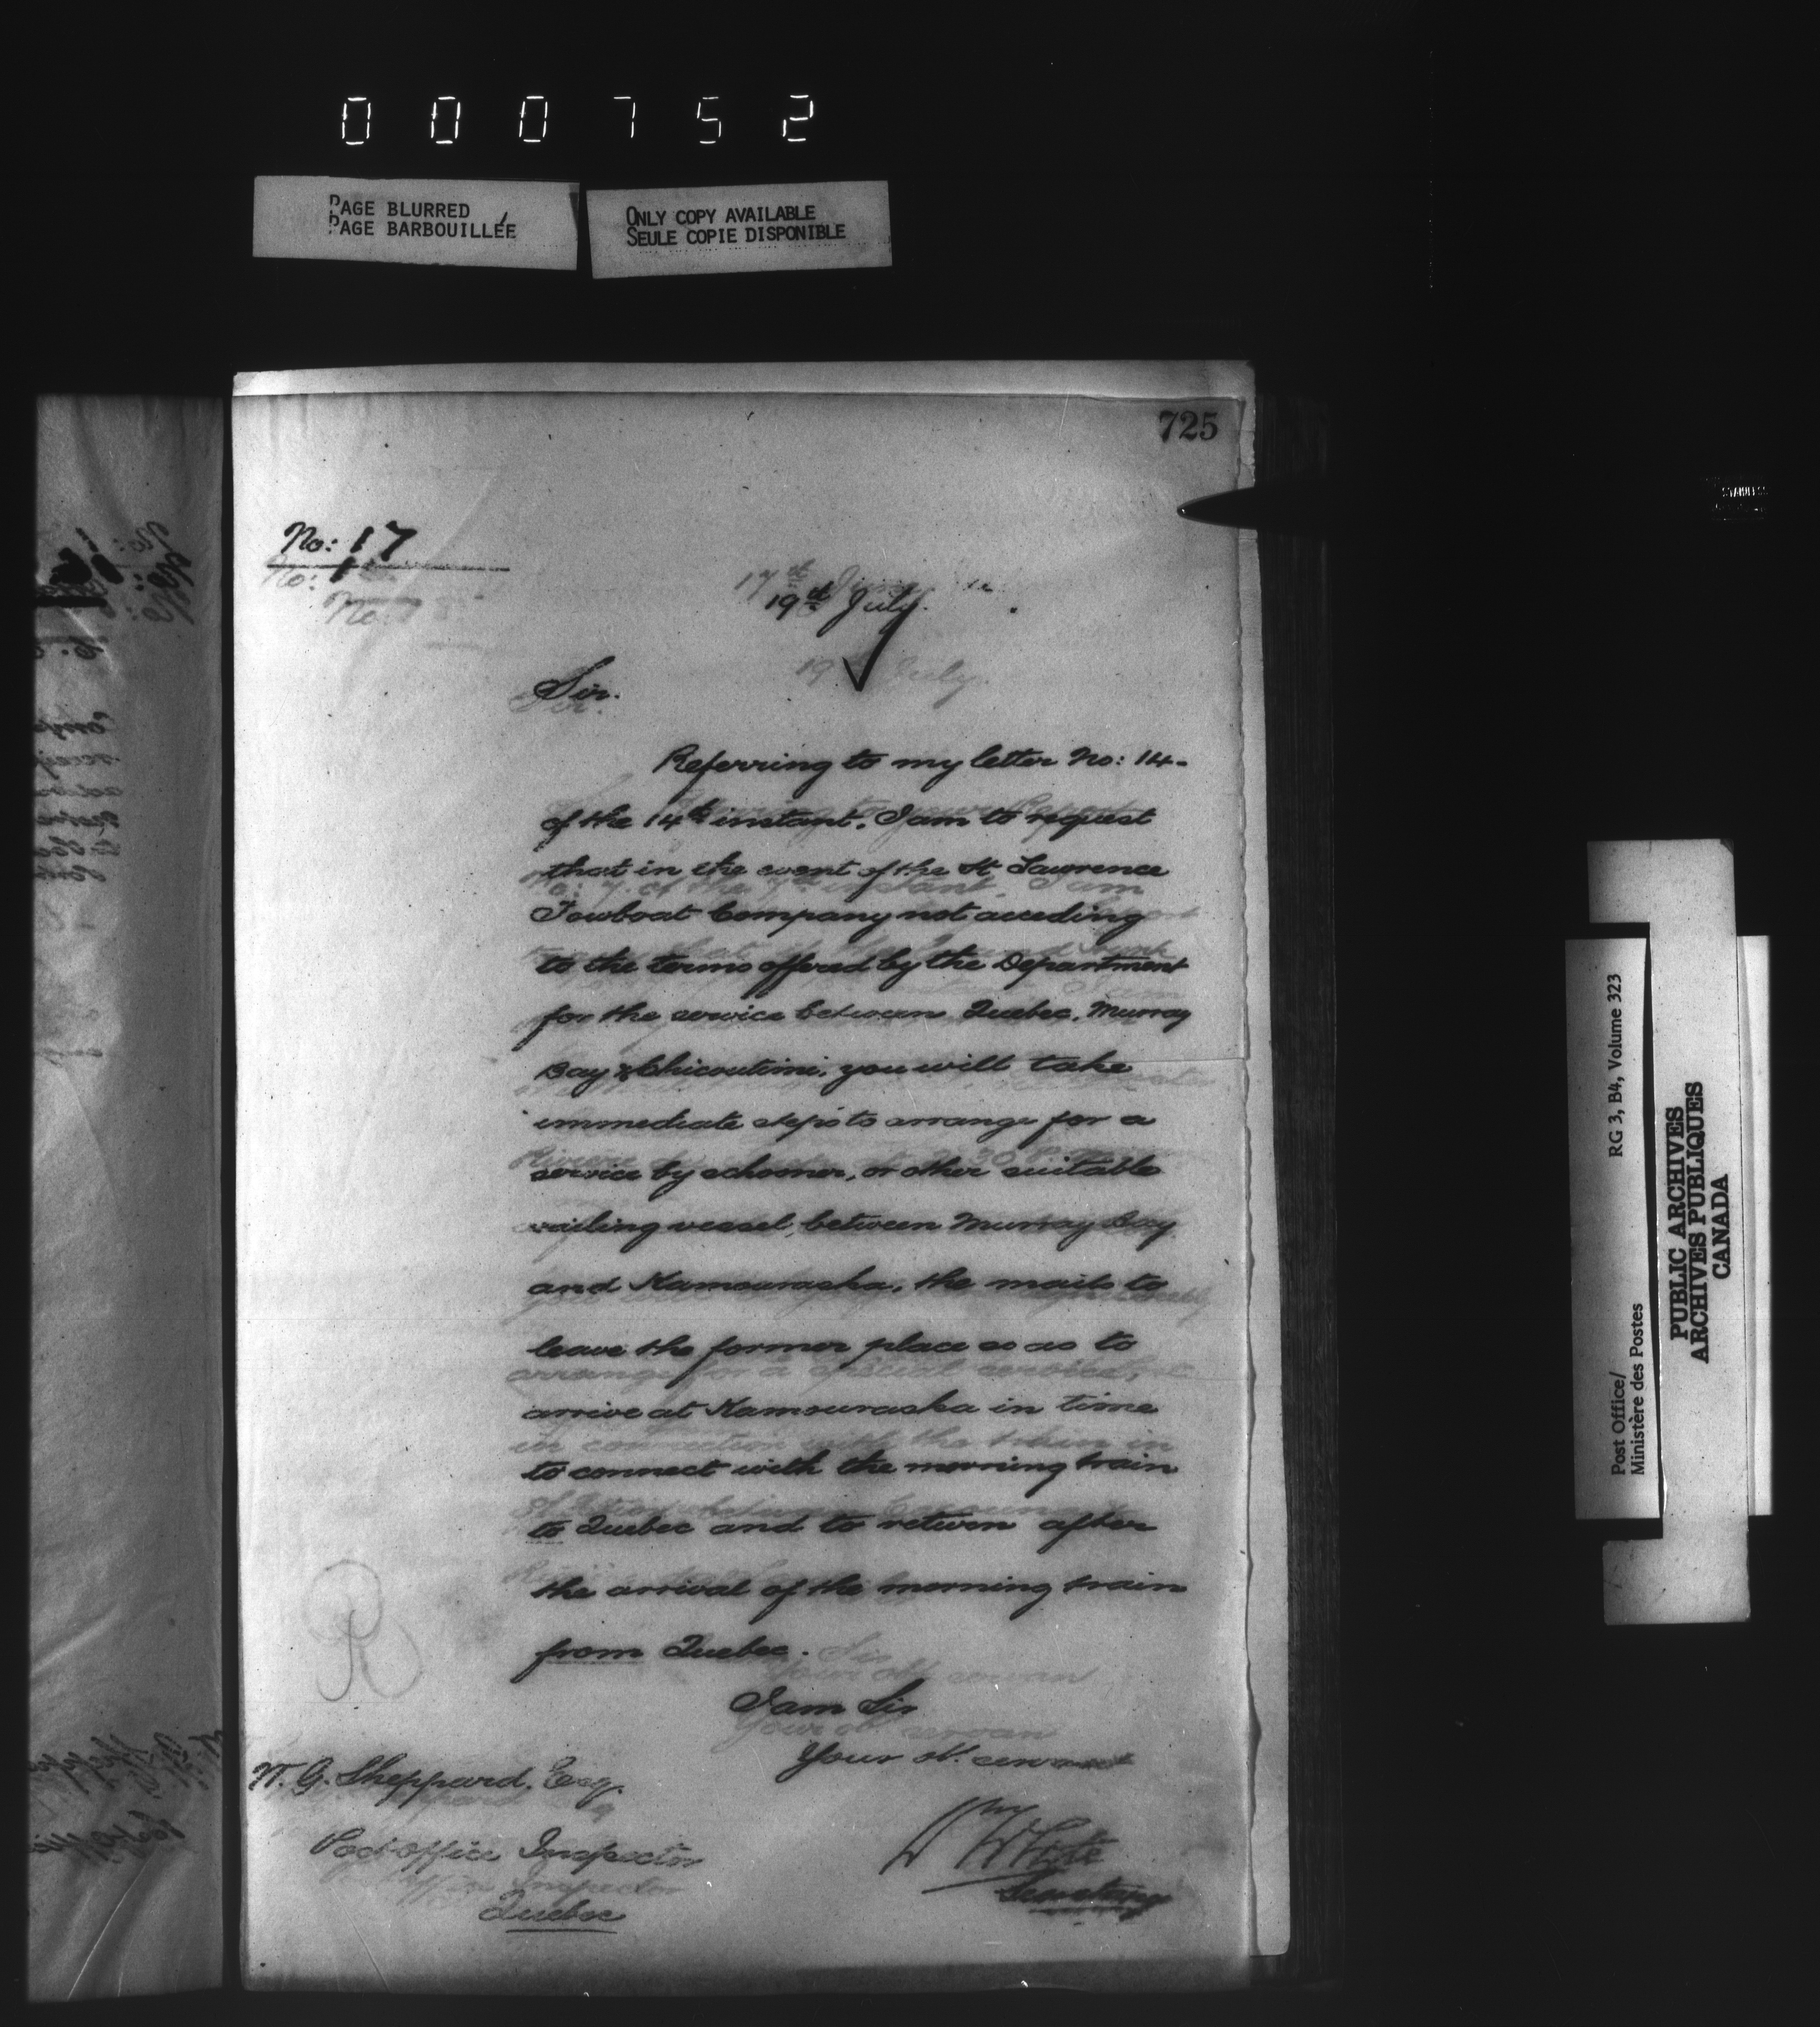 000752
PAGE BLURRED
PAGE BARBOUILLÉE
ONLY COPY AVAILABLE
SEULE COPIE DISPONIBLE
725
No: 17
19th July.
Sir.
Referring to my letter No: 14-
of the 14th instant, I am to request
that in the event of the St Lawrence
Towboat Company not acceding
to the terms offered by the Department
for the service between Quebec, Murray
Bay & Chicoutimi, you will take
immediate steps to arrange for a
service by schooner, or other suitable
sailing vessel, between Murray Bay
and Kamouraska, the mails to
leave the former place so as to
arrive at Kamouraska in time
to connect with the morning train
to Quebec and to return after
the arrival of the morning train
from Quebec.
I am Sir
Your obt. servant
W. G. Sheppard. Esq.
Post Office Inspector
Quebec
Wm White
Secretary
Post Office/
Ministère des Postes
RG 3, B4, Volume 323
PUBLIC ARCHIVES
ARCHIVES PUBLIQUES
CANADA